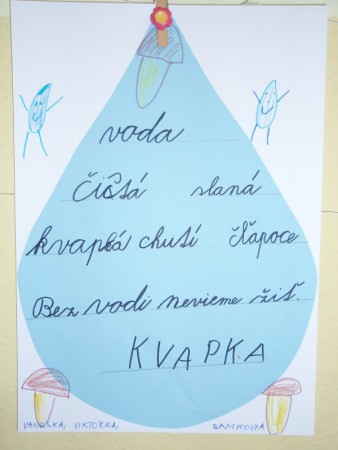 voda
čistá slaná
kvapká chutí člapoce
Bez vodi nevieme žiť.
KVAPKA
VANESKA, VIKTORKA,